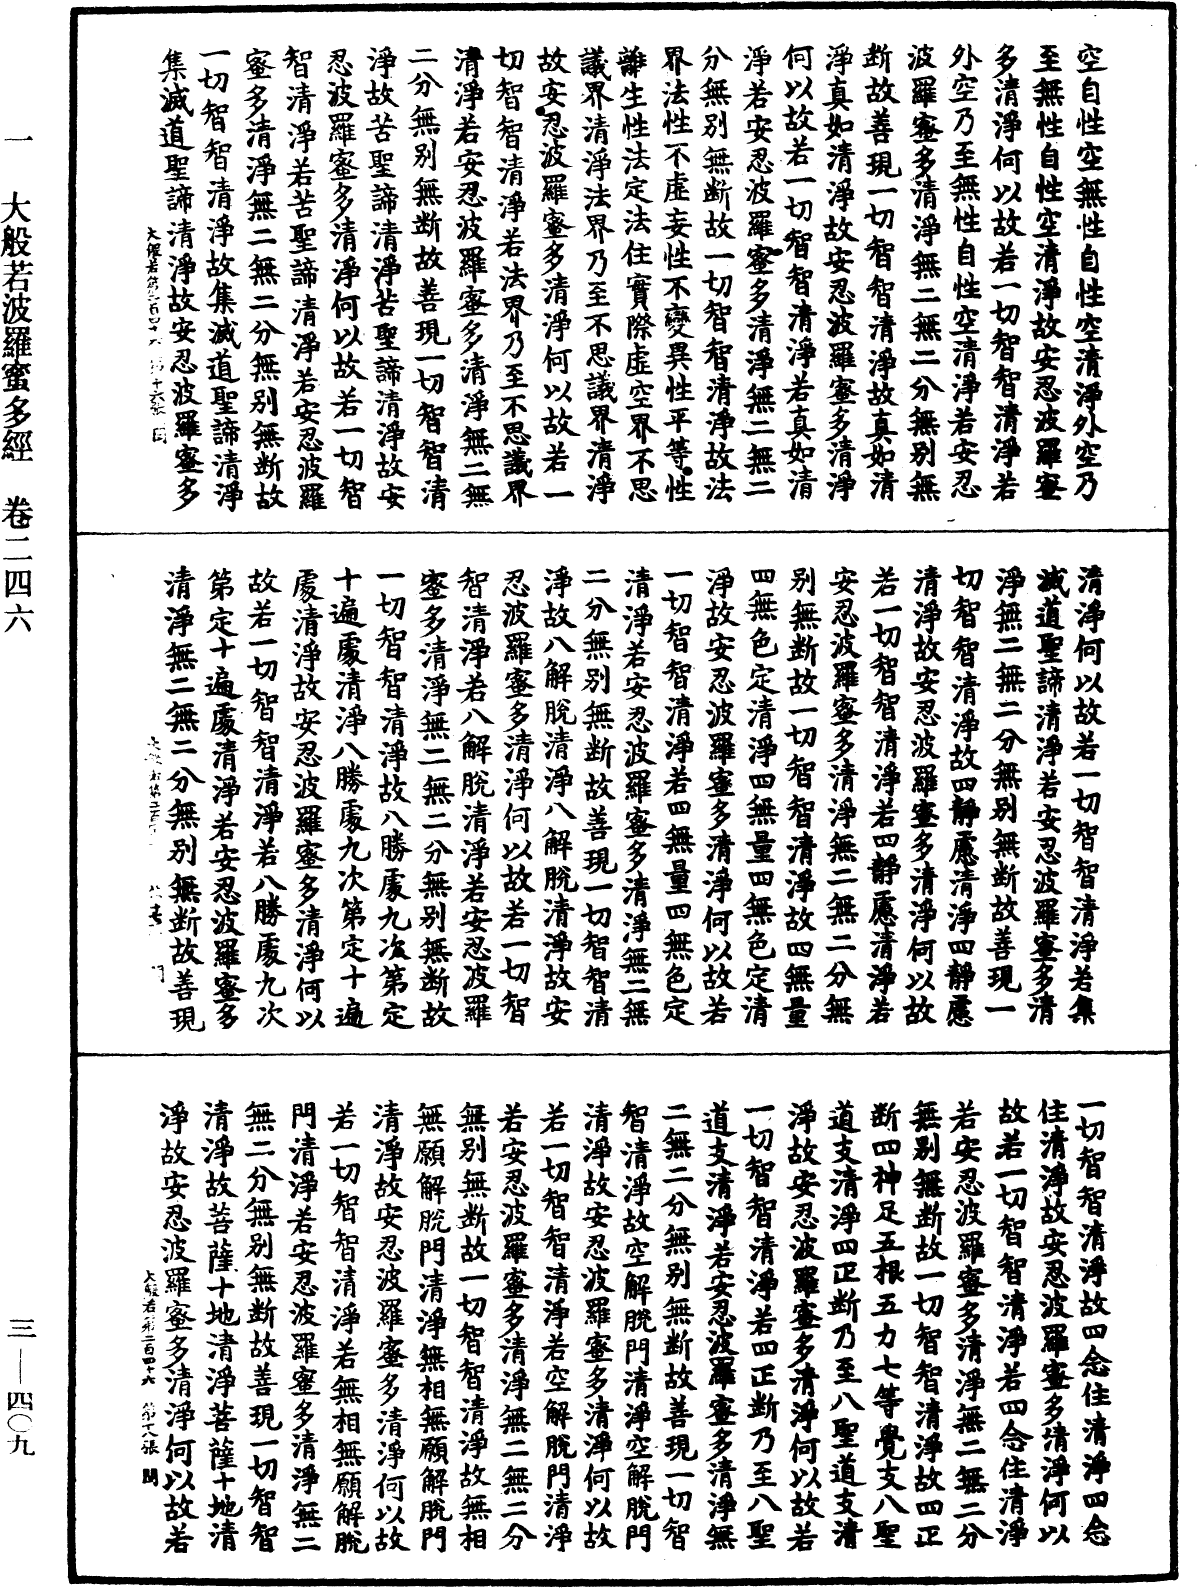 空自性空無性自性空清淨外空乃
至無性自性空清淨故安忍波羅蜜
多清淨何以故若一切智智清淨若
外空乃至無性自性空清淨若安忍
波羅蜜多清淨無二無二分無別無
断故善現一切智智清淨故真如清
淨真如清淨故安忍波羅蜜多清淨
何以故若一切智智清淨若真如清
淨若安忍波羅蜜多清淨無二無二
分無別無断故一切智智清淨故法
界法性不虛妄性不變異性平等性
離生性法定法住實際虛空界不思
議界清淨法界乃至不思議界清淨
故安忍波羅蜜多清淨何以故若一
切智智清淨若法界乃至不思議界
清淨若安忍波羅蜜多清淨無二無
二分無別無断故善現一切智智清
淨故苦聖諦清淨苦聖諦清淨故安
忍波羅蜜多清淨何以故若一切智
智清淨若苦聖諦清淨若安忍波羅
蜜多清淨無二無二分無別無断故
一切智智清淨故集滅道聖諦清淨
集滅道聖諦清淨故安忍波羅蜜多
清淨何以故若一切智智清淨若集
滅道聖諦清淨若安忍波羅蜜多清
淨無二無二分無別無断故善現一
切智智清淨故四靜慮清淨四靜慮
清淨故安忍波羅蜜多清淨何以故
若一切智智清淨若四靜慮清淨若
安忍波羅蜜多清淨無二無二分無
別無断故一切智智清淨故四無量
四無色定清淨四無量四無色定清
淨故安忍波羅蜜多清淨何以故若
一切智智清淨若四無量四無色定
清淨若安忍波羅蜜多清淨無二無
二分無別無断故善現一切智智清
淨故八解脫清淨八解脫清淨故安
忍波羅蜜多清淨何以故若一切智
智清淨若八解脫清淨若安忍波羅
蜜多清淨無二無二分無別無断故
一切智智清淨故八勝處九次第定
十遍處清淨八勝處九次第定十遍
處清淨故安忍波羅蜜多清淨何以
故若一切智智清淨若八勝處九次
第定十遍處清淨若安忍波羅蜜多
清淨無二無二分無別無断故善現
一切智智清淨故四念住清淨四念
住清淨故安忍波羅蜜多清淨何以
故若一切智智清淨若四念住清淨
若安忍波羅蜜多清淨無二無二分
無別無断故一切智智清淨故四正
断四神足五根五力七等覺支八聖
道支清淨四正断乃至八聖道支清
淨故安忍波羅蜜多清淨何以故若
一切智智清淨若四正断乃至八聖
道支清淨若安忍波羅蜜多清淨無
二無二分無別無断故善現一切智
智清淨故空解脫門清淨空解脫門
清淨故安忍波羅蜜多清淨何以故
若一切智智清淨若空解脫門清淨
若安忍波羅蜜多清淨無二無二分
無別無断故一切智智清淨故無相
無願解脫門清淨無相無願解脫門
清淨故安忍波羅蜜多清淨何以故
若一切智智清淨若無相無願解脫
門清淨若安忍波羅蜜多清淨無二
無二分無別無断故善現一切智智
清淨故菩薩十地清淨菩薩十地清
淨故安忍波羅蜜多清淨何以故若
大般若第二百四十六 第十八張
一 大般若波羅蜜多經 卷二四六
三—四〇九